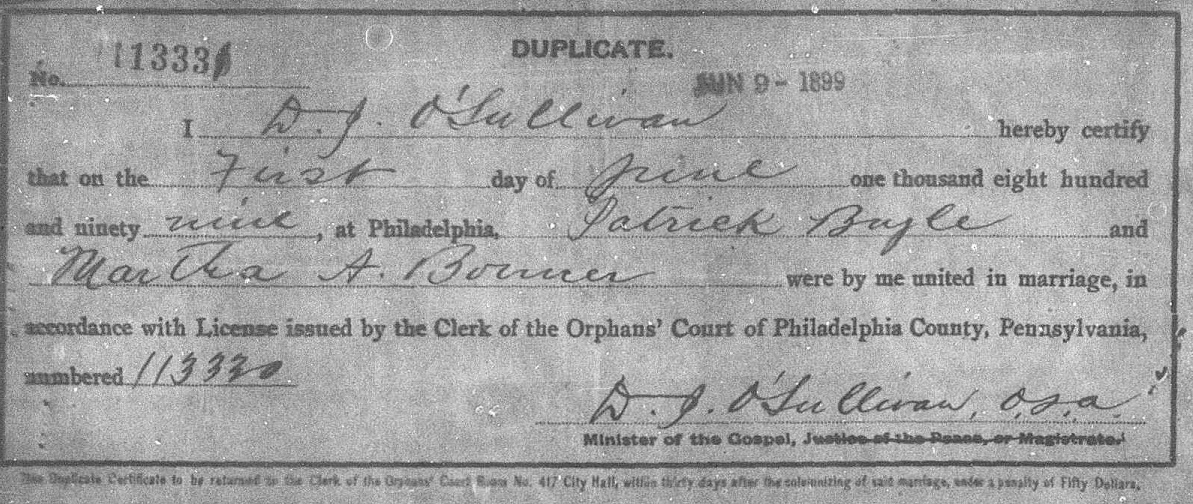 DUPLICATE.
No. 11333
JUN 9 - 1899
I D. J. O'Sullivan hereby certify
that on the First day of June one thousand eight hundred
and ninety nine, at Philadelphia, Patrick Bogle and
Martha A. Bonner were by me united in marriage, in
accordance with License issued by the Clerk of the Orphans' Court of Philadelphia County, Pennsylvania,
numbered 113330
D. J. O'Sullivan, O.S.A.
Minister of the Gospel, Justice of the Peace, or Magistrate.
The Duplicate Certificate to be returned to the Clerk of the Orphans' Court Room No. 417 City Hall, within thirty days after the solemnizing of said marriage, under a penalty of Fifty Dollars.